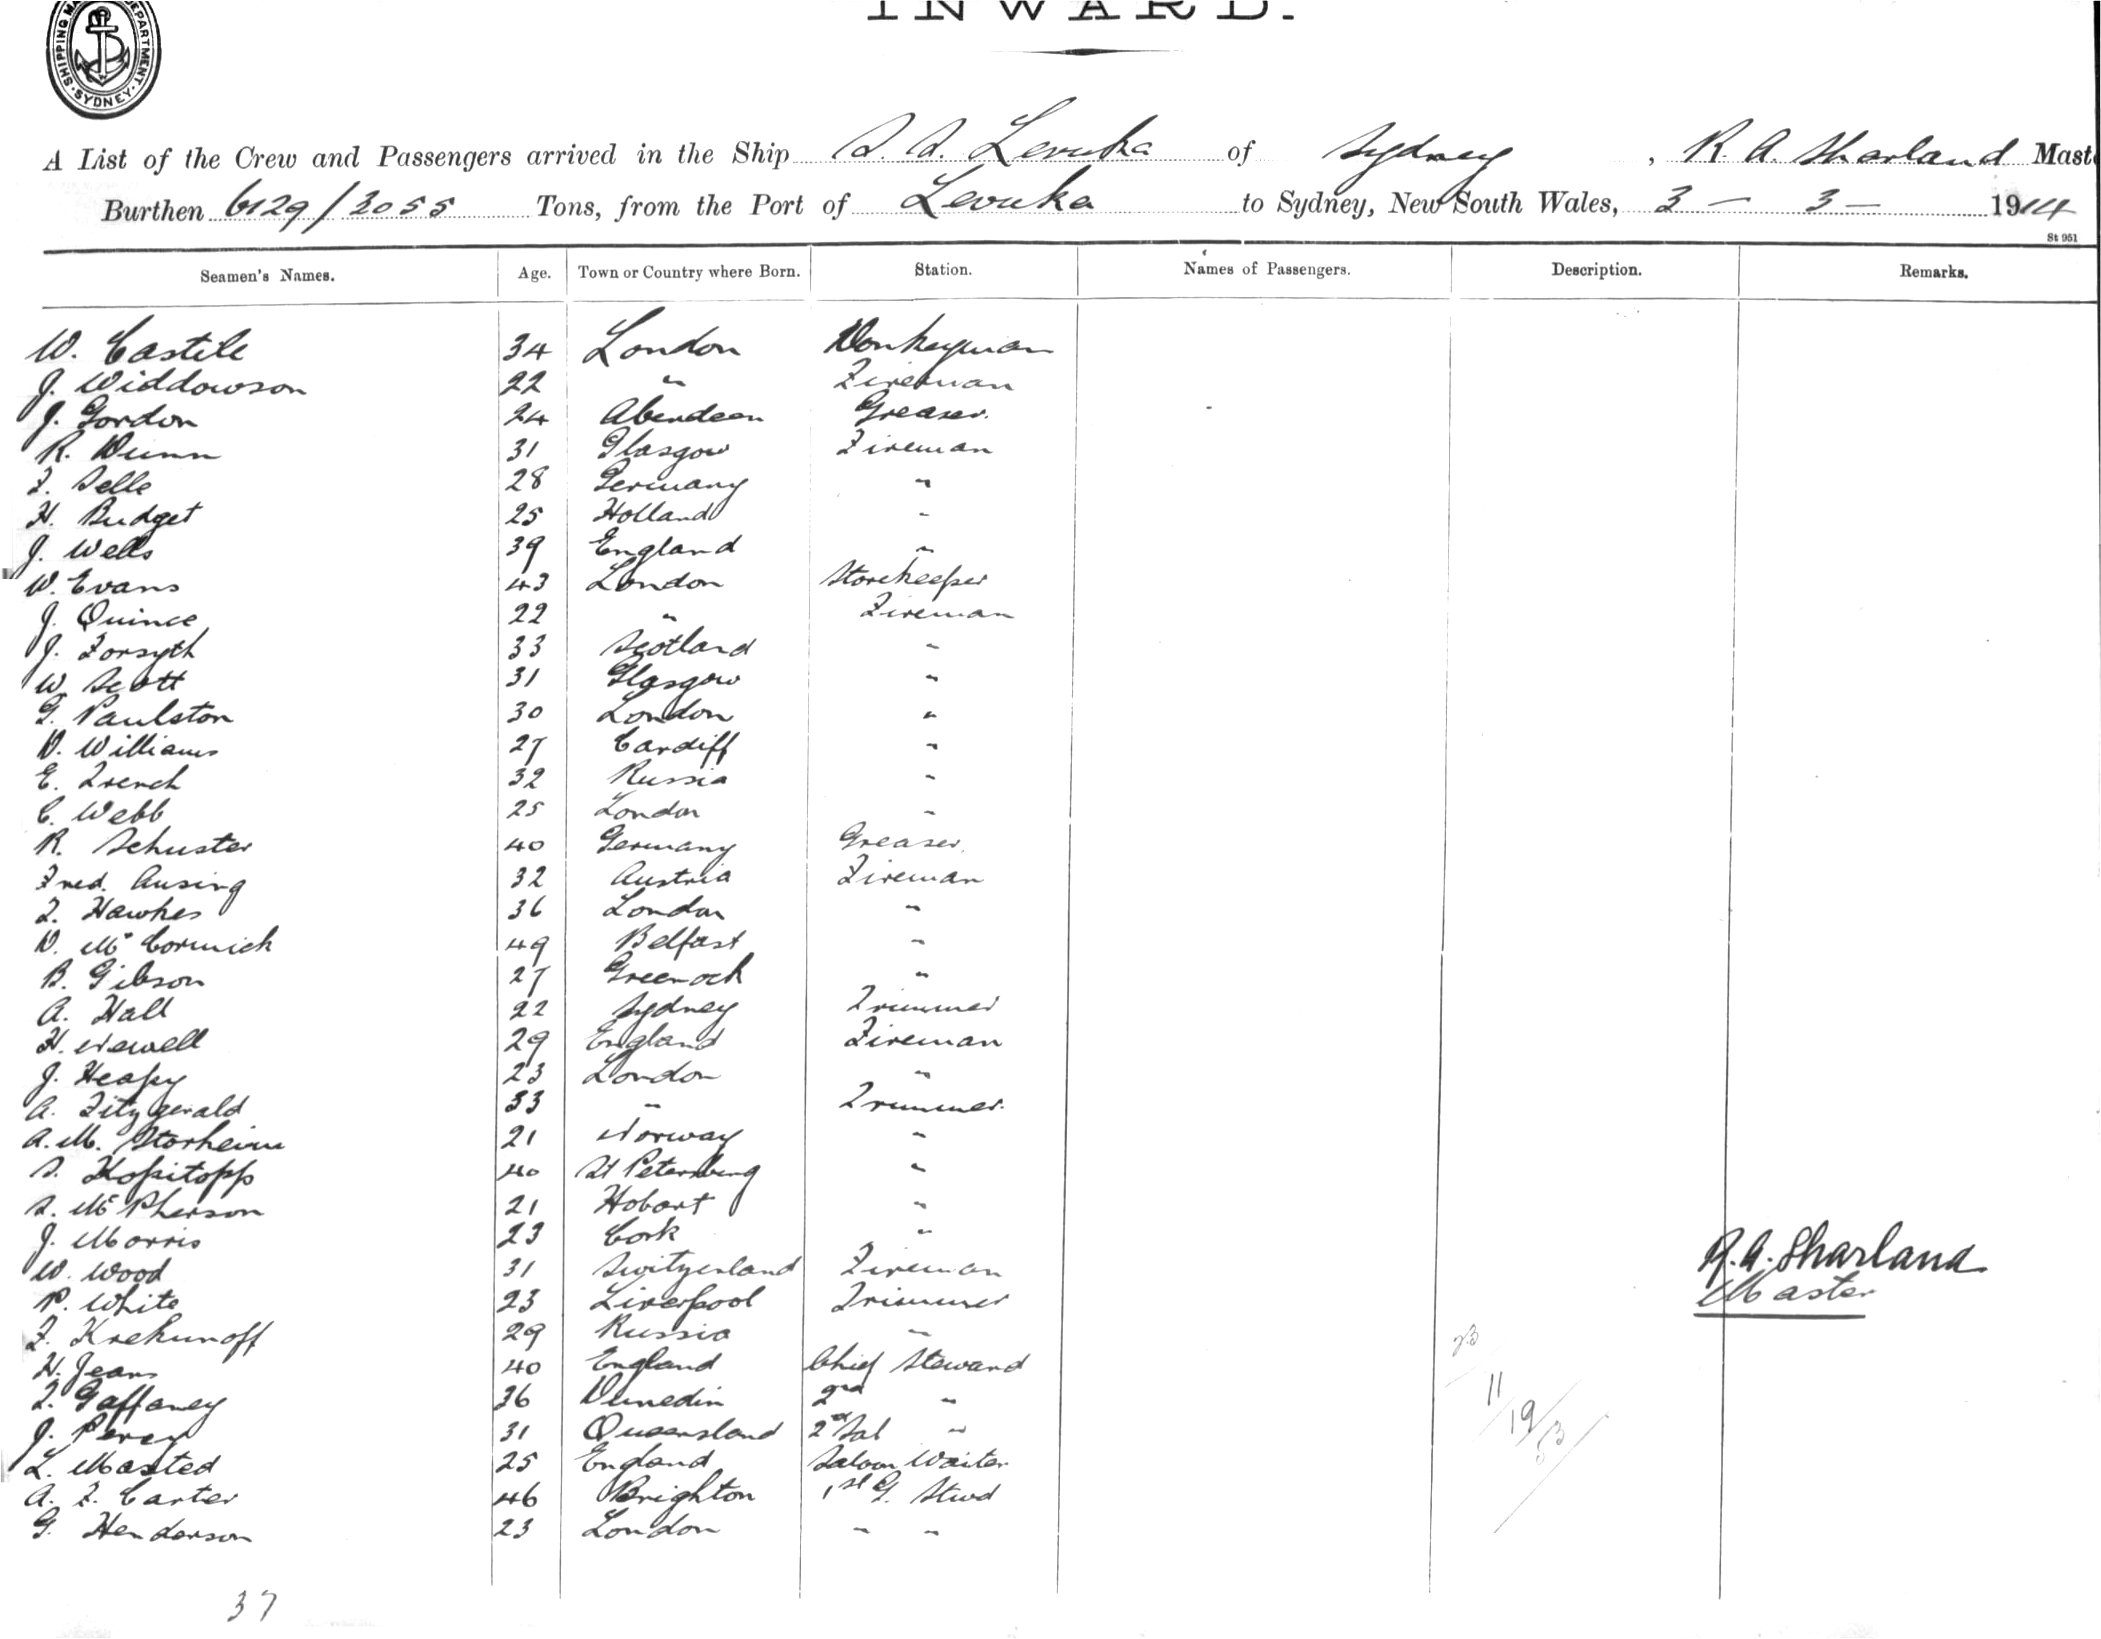 INWARD.
SHIPPING MA DEPARTMENT. SYDNEY.
A List of the Crew and Passengers arrived in the Ship S. S. Levuka of Sydney, R. A. Sharland Mast
Burthen 6129/3055 Tons, from the Port of Levuka to Sydney, New South Wales, 3 – 3 – 1914
St 951
Seamen's Names. Age. Town or Country where Born. Station. Names of Passengers. Description. Remarks.
W. Castile 34 London Donkeyman
J. Widdowson 22 " Fireman
J. Gordon 24 Aberdeen Greaser.
R. Dunn 31 Glasgow Fireman
F. Selle 28 Germany "
H. Budget 25 Holland "
J. Wells 39 England "
W. Evans 43 London Storekeeper
J. Quince 22 " Fireman
J. Forsyth 33 Scotland "
W. Scott 31 Glasgow "
G. Paulston 30 London "
D. Williams 27 Cardiff "
E. Trench 32 Russia "
C. Webb 25 London "
R. Schuster 40 Germany Greaser.
Fred. Ausing 32 Austria Fireman
T. Hawkes 36 London "
D. McCormick 49 Belfast "
B. Gibson 27 Greenock "
A. Hall 22 Sydney Trimmer
H. Newell 29 England Fireman
J. Heapy 23 London "
A. Fitzgerald 33 " Trimmer.
A. M. Storheim 21 Norway "
S. Kopitopp 40 St Petersburg "
S. McPherson 21 Hobart "
J. Morris 23 Cork "
W. Wood 31 Switzerland Fireman
R. A. Sharland
P. White 23 Liverpool Trimmer
Master
F. Krekunoff 29 Russia "
H. Jeans 40 England Chief Steward
T. Gaffaney 36 Dunedin 2nd "
J. Percy 31 Queensland 2nd Sal "
L. Masted 25 England Saloon Waiter
A. F. Carter 46 Brighton 1st G. Stwd
G. Henderson 23 London " "
23
11
19
53
37